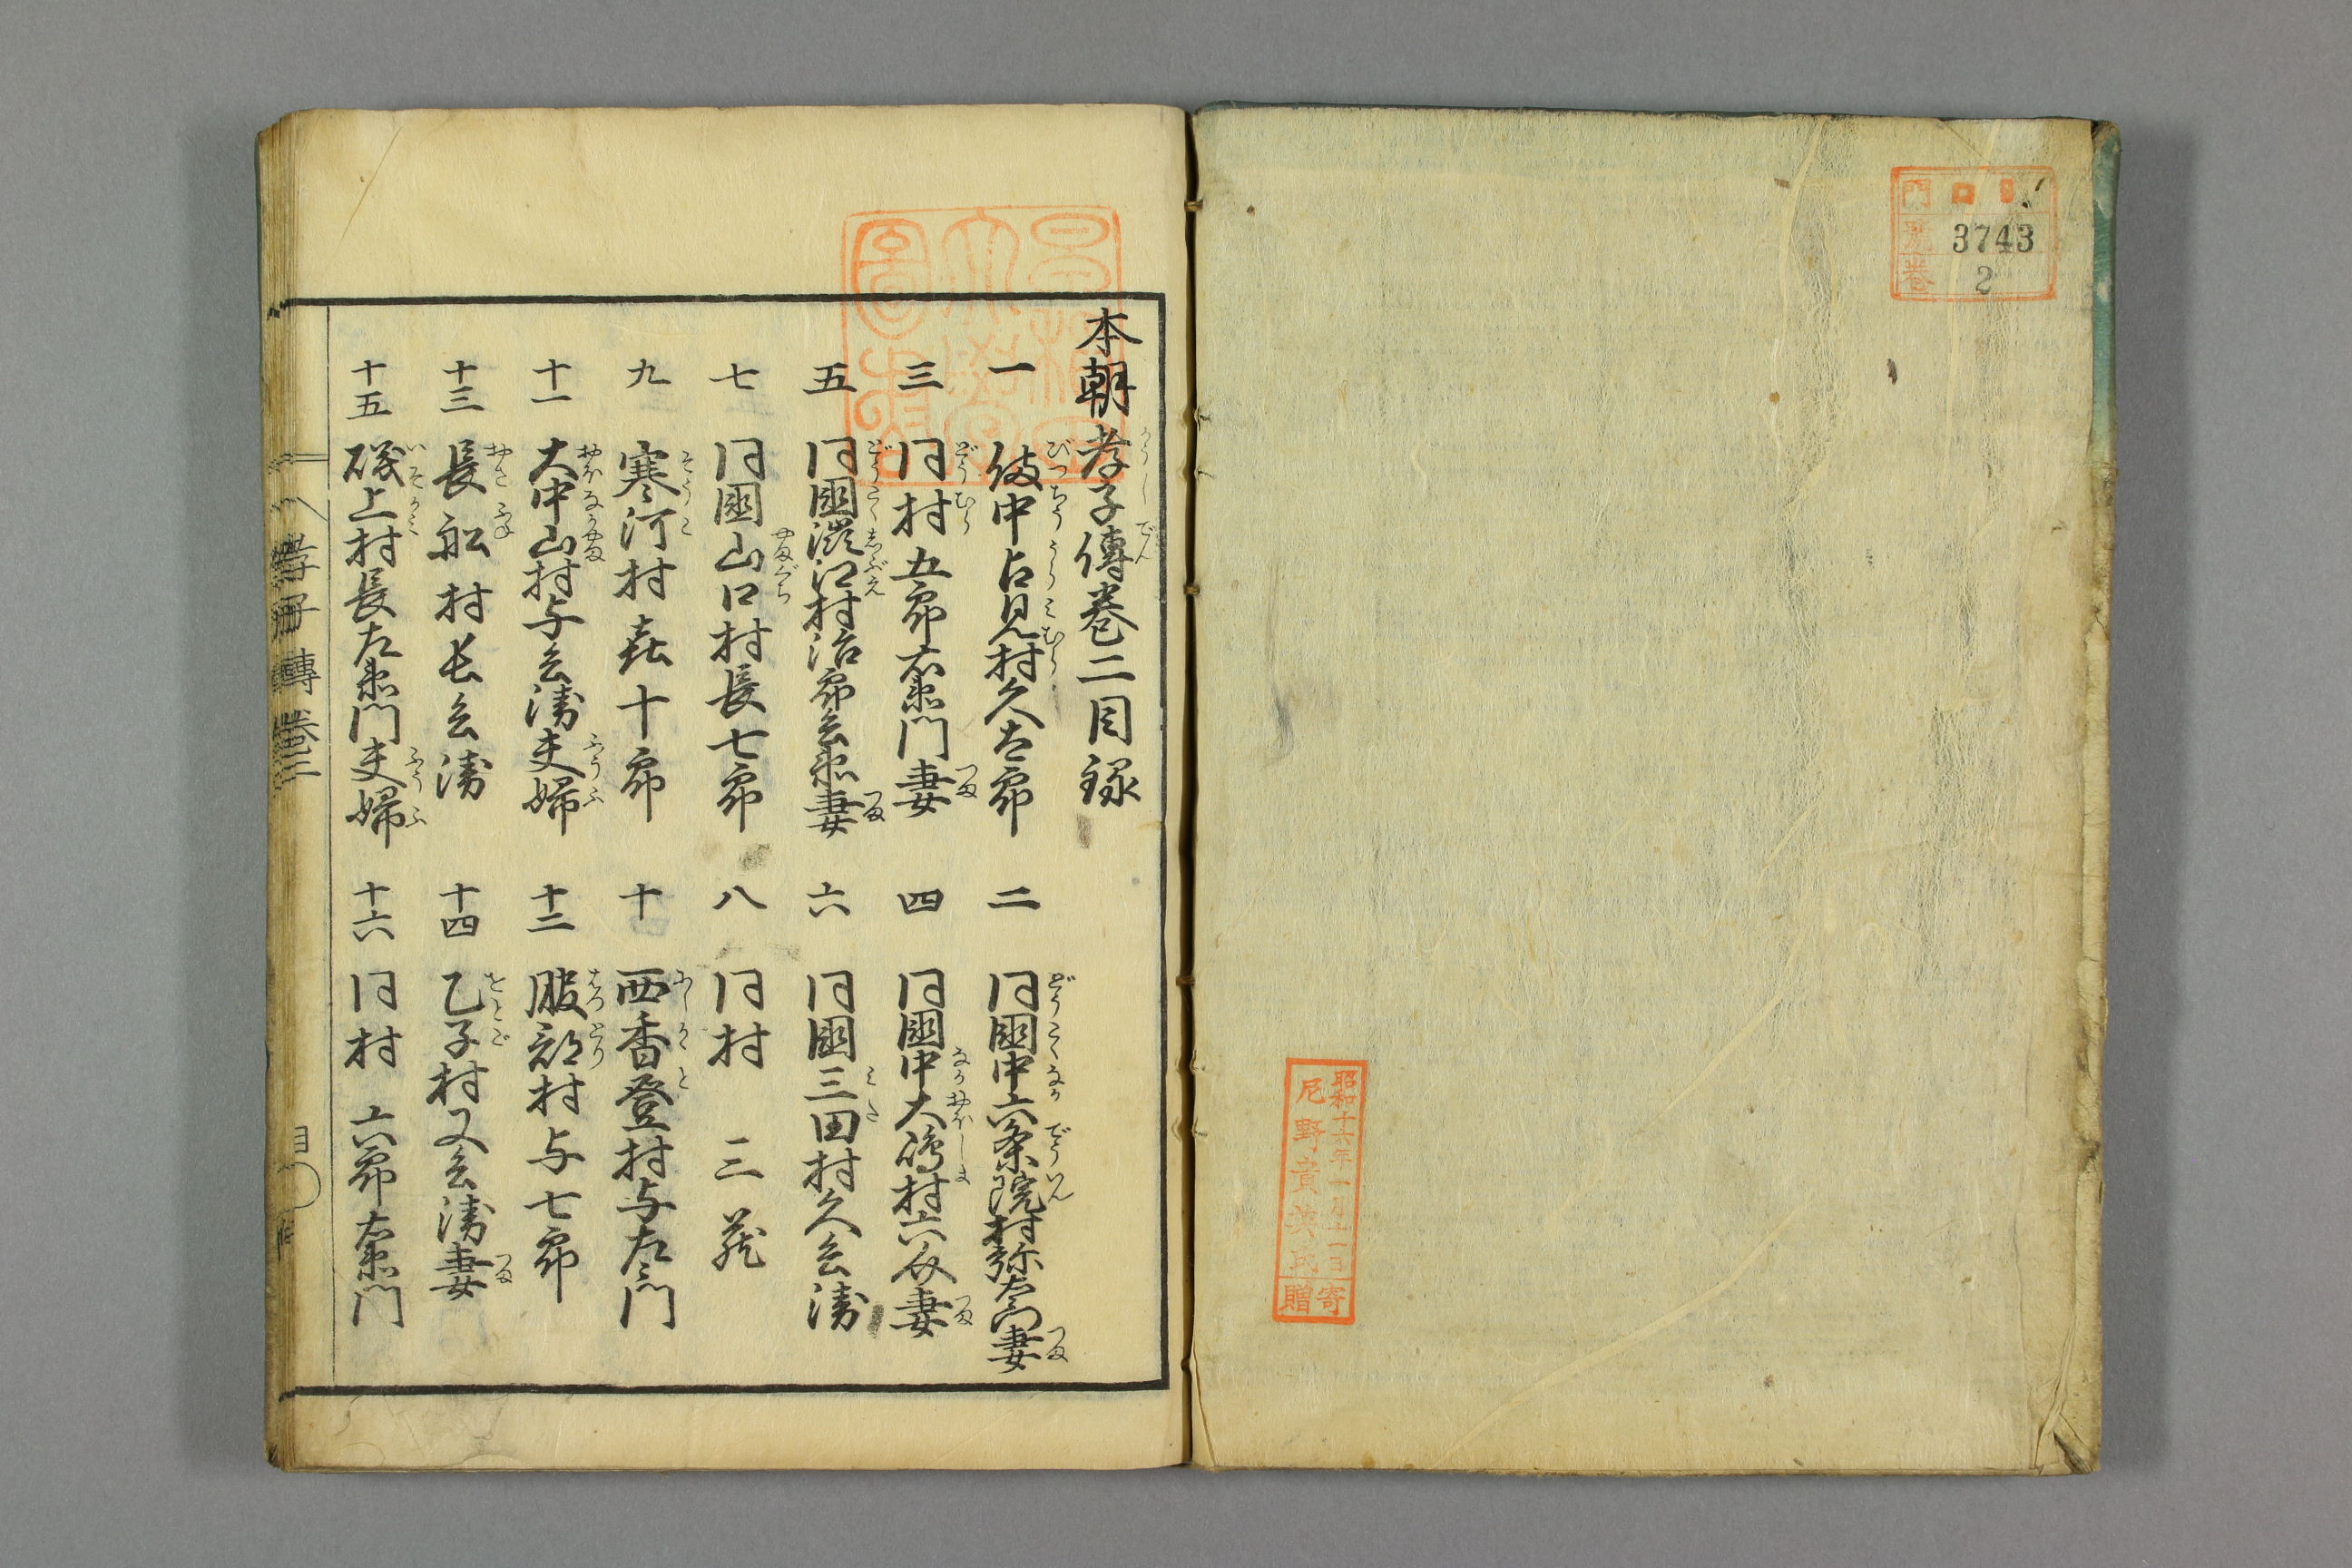 門
号
3743
巻
2
昭和十六年一月十一日
尼野貴英氏
寄贈
本朝孝子傳巻二目録
一 備中占見村久太郎
二 同國中六条院村弥左衛門妻
三 同村五郎右衛門妻
四 同國中大嶋村六介妻
五 同國澁江村治郎兵衛妻
六 同國三田村久兵衛
七 同國山口村長七郎
八 同村三蔵
九 寒河村㐂十郎
十 西香登村与左衛門
十一 大中山村与兵衛夫婦
十二 服部村与七郎
十三 長舩村長兵衛
十四 乙子村又兵衛妻
十五 磯上村長左衛門夫婦
十六 同村六郎右衛門
孝子傳 巻二
目